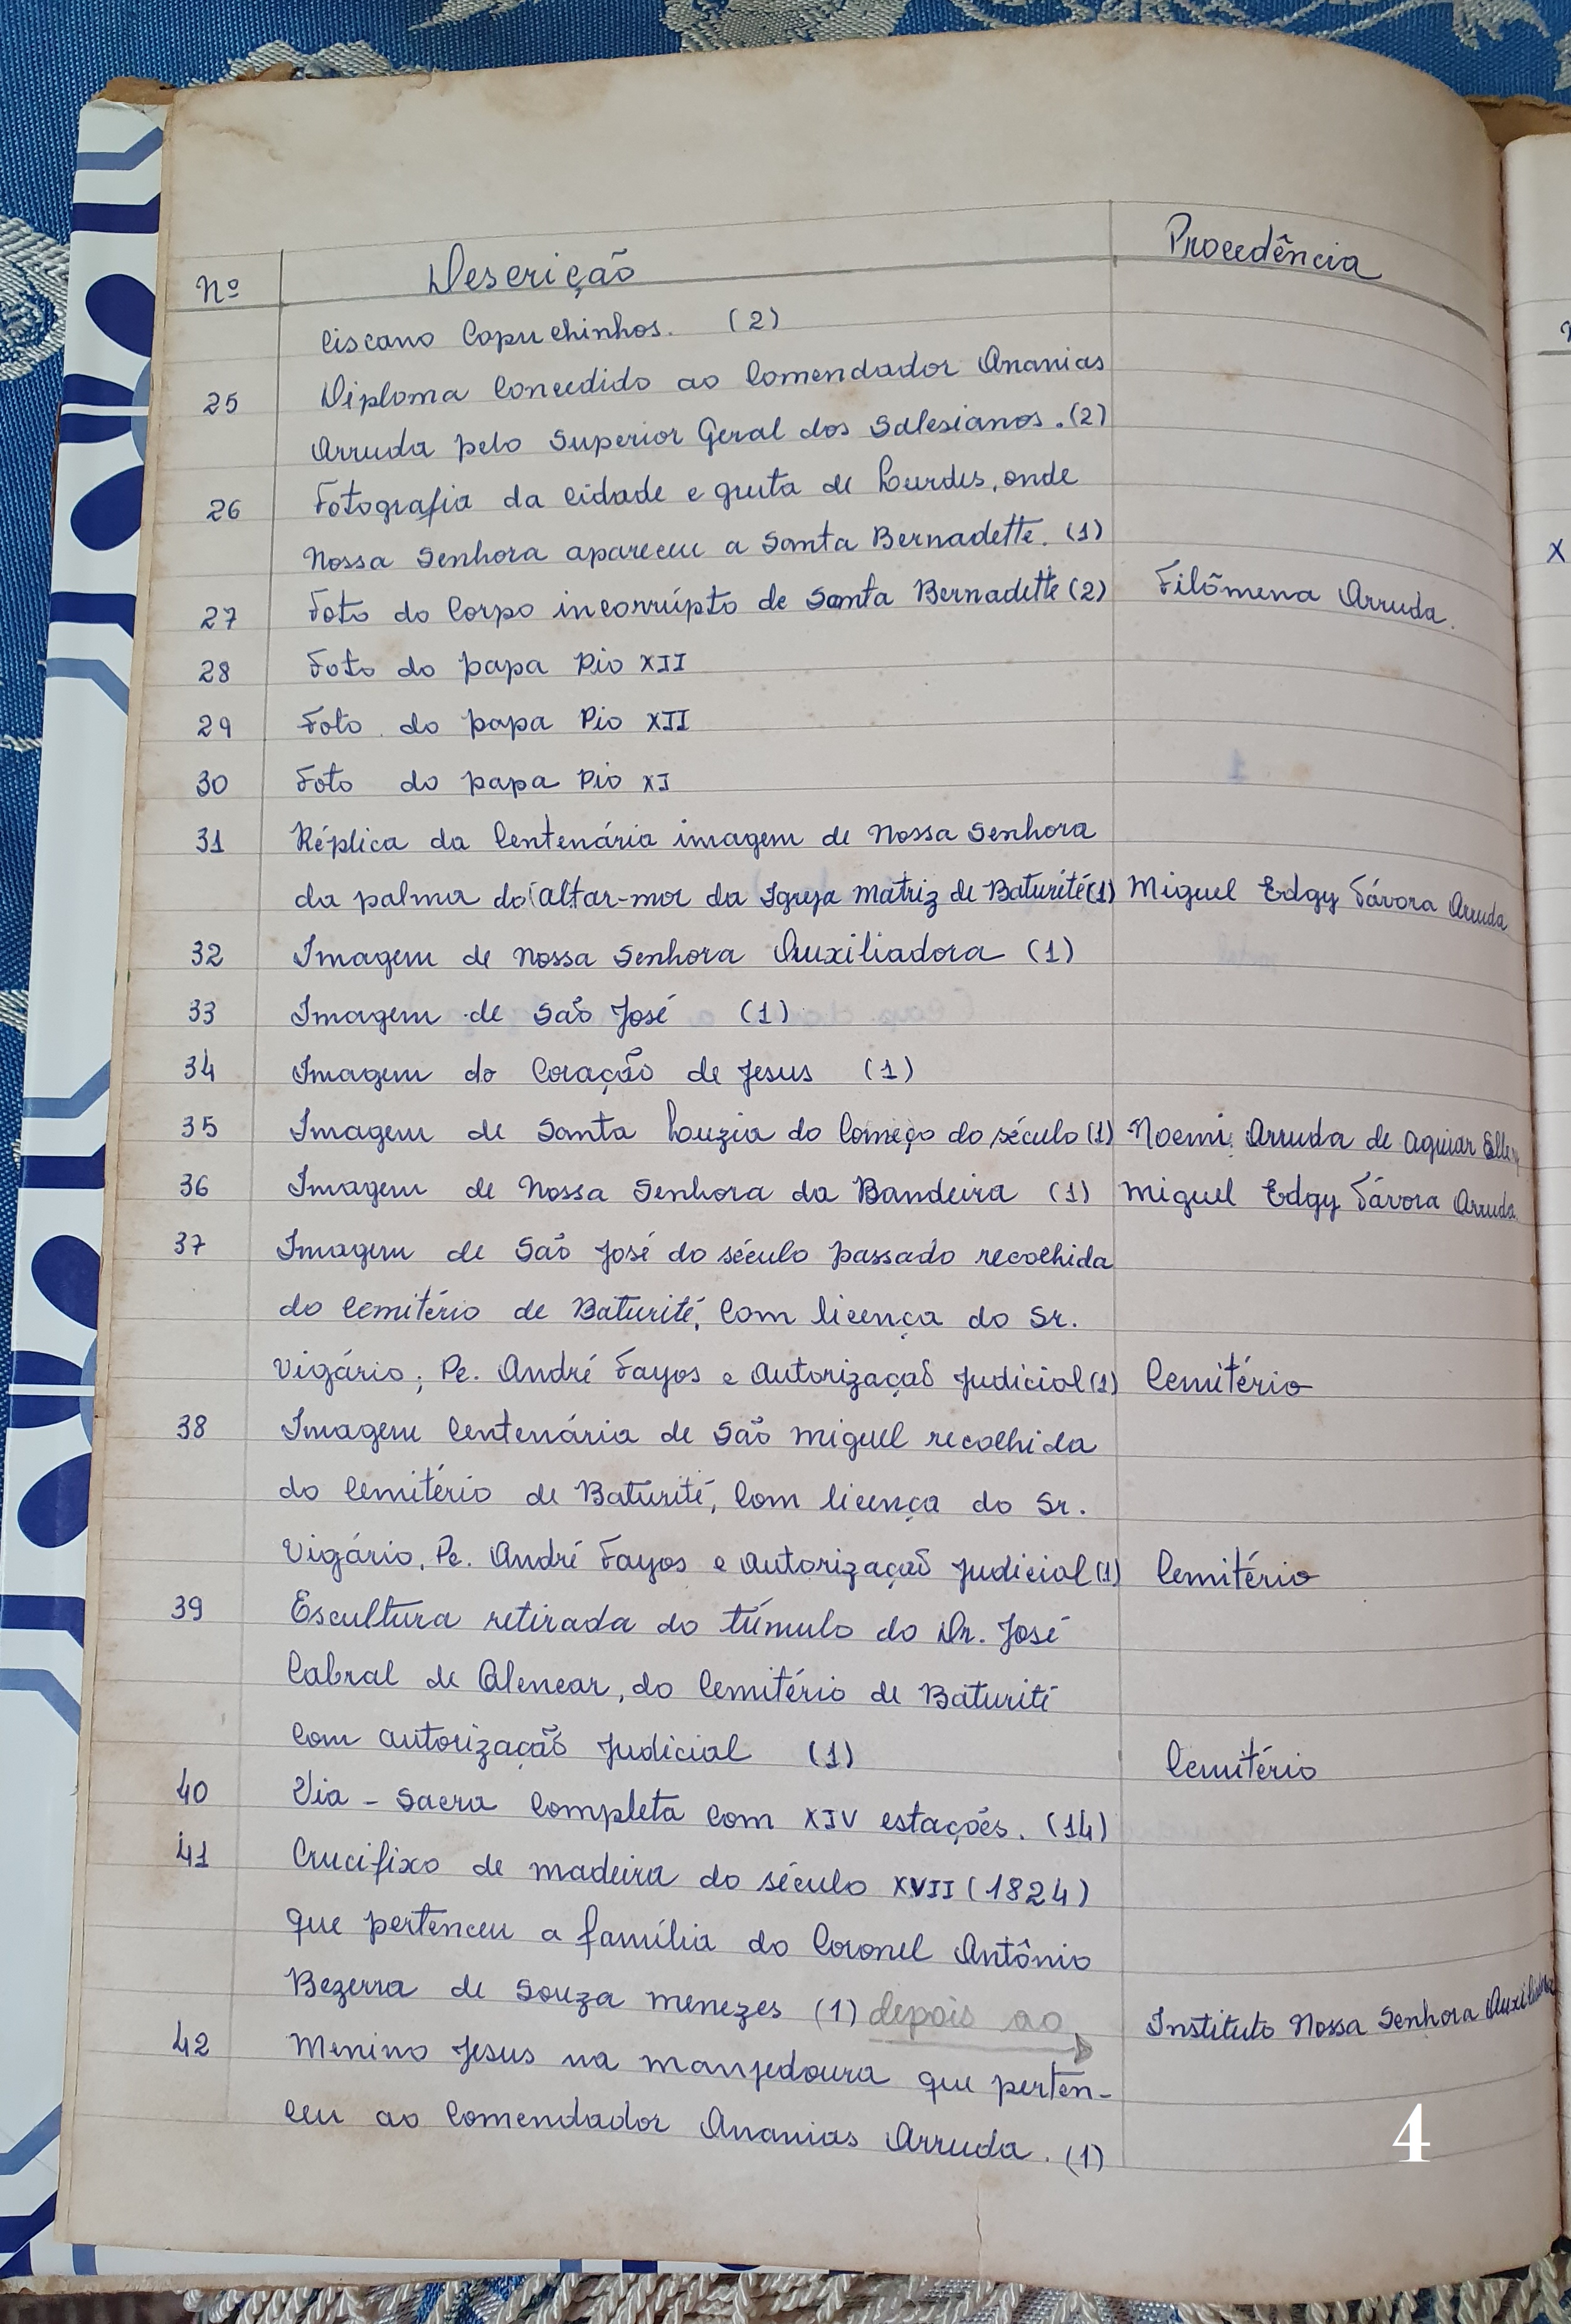 Nº Descrição Procedência
ciscano Capuchinhos. (2)
25 Diploma Concedido ao Comendador Ananias
Arruda pelo Superior Geral dos Salesianos. (2)
26 Fotografia da cidade e gruta de Lourdes, onde
Nossa Senhora apareceu a Santa Bernadette. (1)
27 Foto do Corpo incorrúpto de Santa Bernadette (2) Filômena Arruda.
28 Foto do papa Pio XII
29 Foto do papa Pio XII
30 Foto do papa Pio XI
31 Réplica da Centenária imagem de Nossa Senhora
da palma do altar-mor da Igreja Matriz de Baturité (1) Miguel Edgy Távora Arruda
32 Imagem de Nossa Senhora Auxiliadora (1)
33 Imagem de São José (1)
34 Imagem do Coração de Jesus (1)
35 Imagem de Santa Luzia do Começo do século (1) Noemi Arruda de Aguiar Ellery
36 Imagem de Nossa Senhora da Bandeira (1) Miguel Edgy Távora Arruda.
37 Imagem de São José do século passado recolhida
do Cemitério de Baturité, Com licença do Sr.
Vigário, Pe. André Fayos e Autorização Judicial (1) Cemitério
38 Imagem Centenária de São Miguel recolhida
do Cemitério de Baturité, Com licença do Sr.
Vigário, Pe. André Fayos e Autorização Judicial (1) Cemitério
39 Escultura retirada do túmulo do Dr. José
Cabral de Alencar, do Cemitério de Baturité
Com autorização Judicial (1) Cemitério
40 Via-Sacra Completa Com XIV estações. (14)
41 Crucifixo de madeira do século XVII (1824)
que pertenceu a família do Coronel Antônio
Bezerra de Souza Menezes (1) depois ao Instituto Nossa Senhora Auxiliadora
42 Menino Jesus na manjedoura que perten-
ceu ao Comendador Ananias Arruda. (1)
4
X